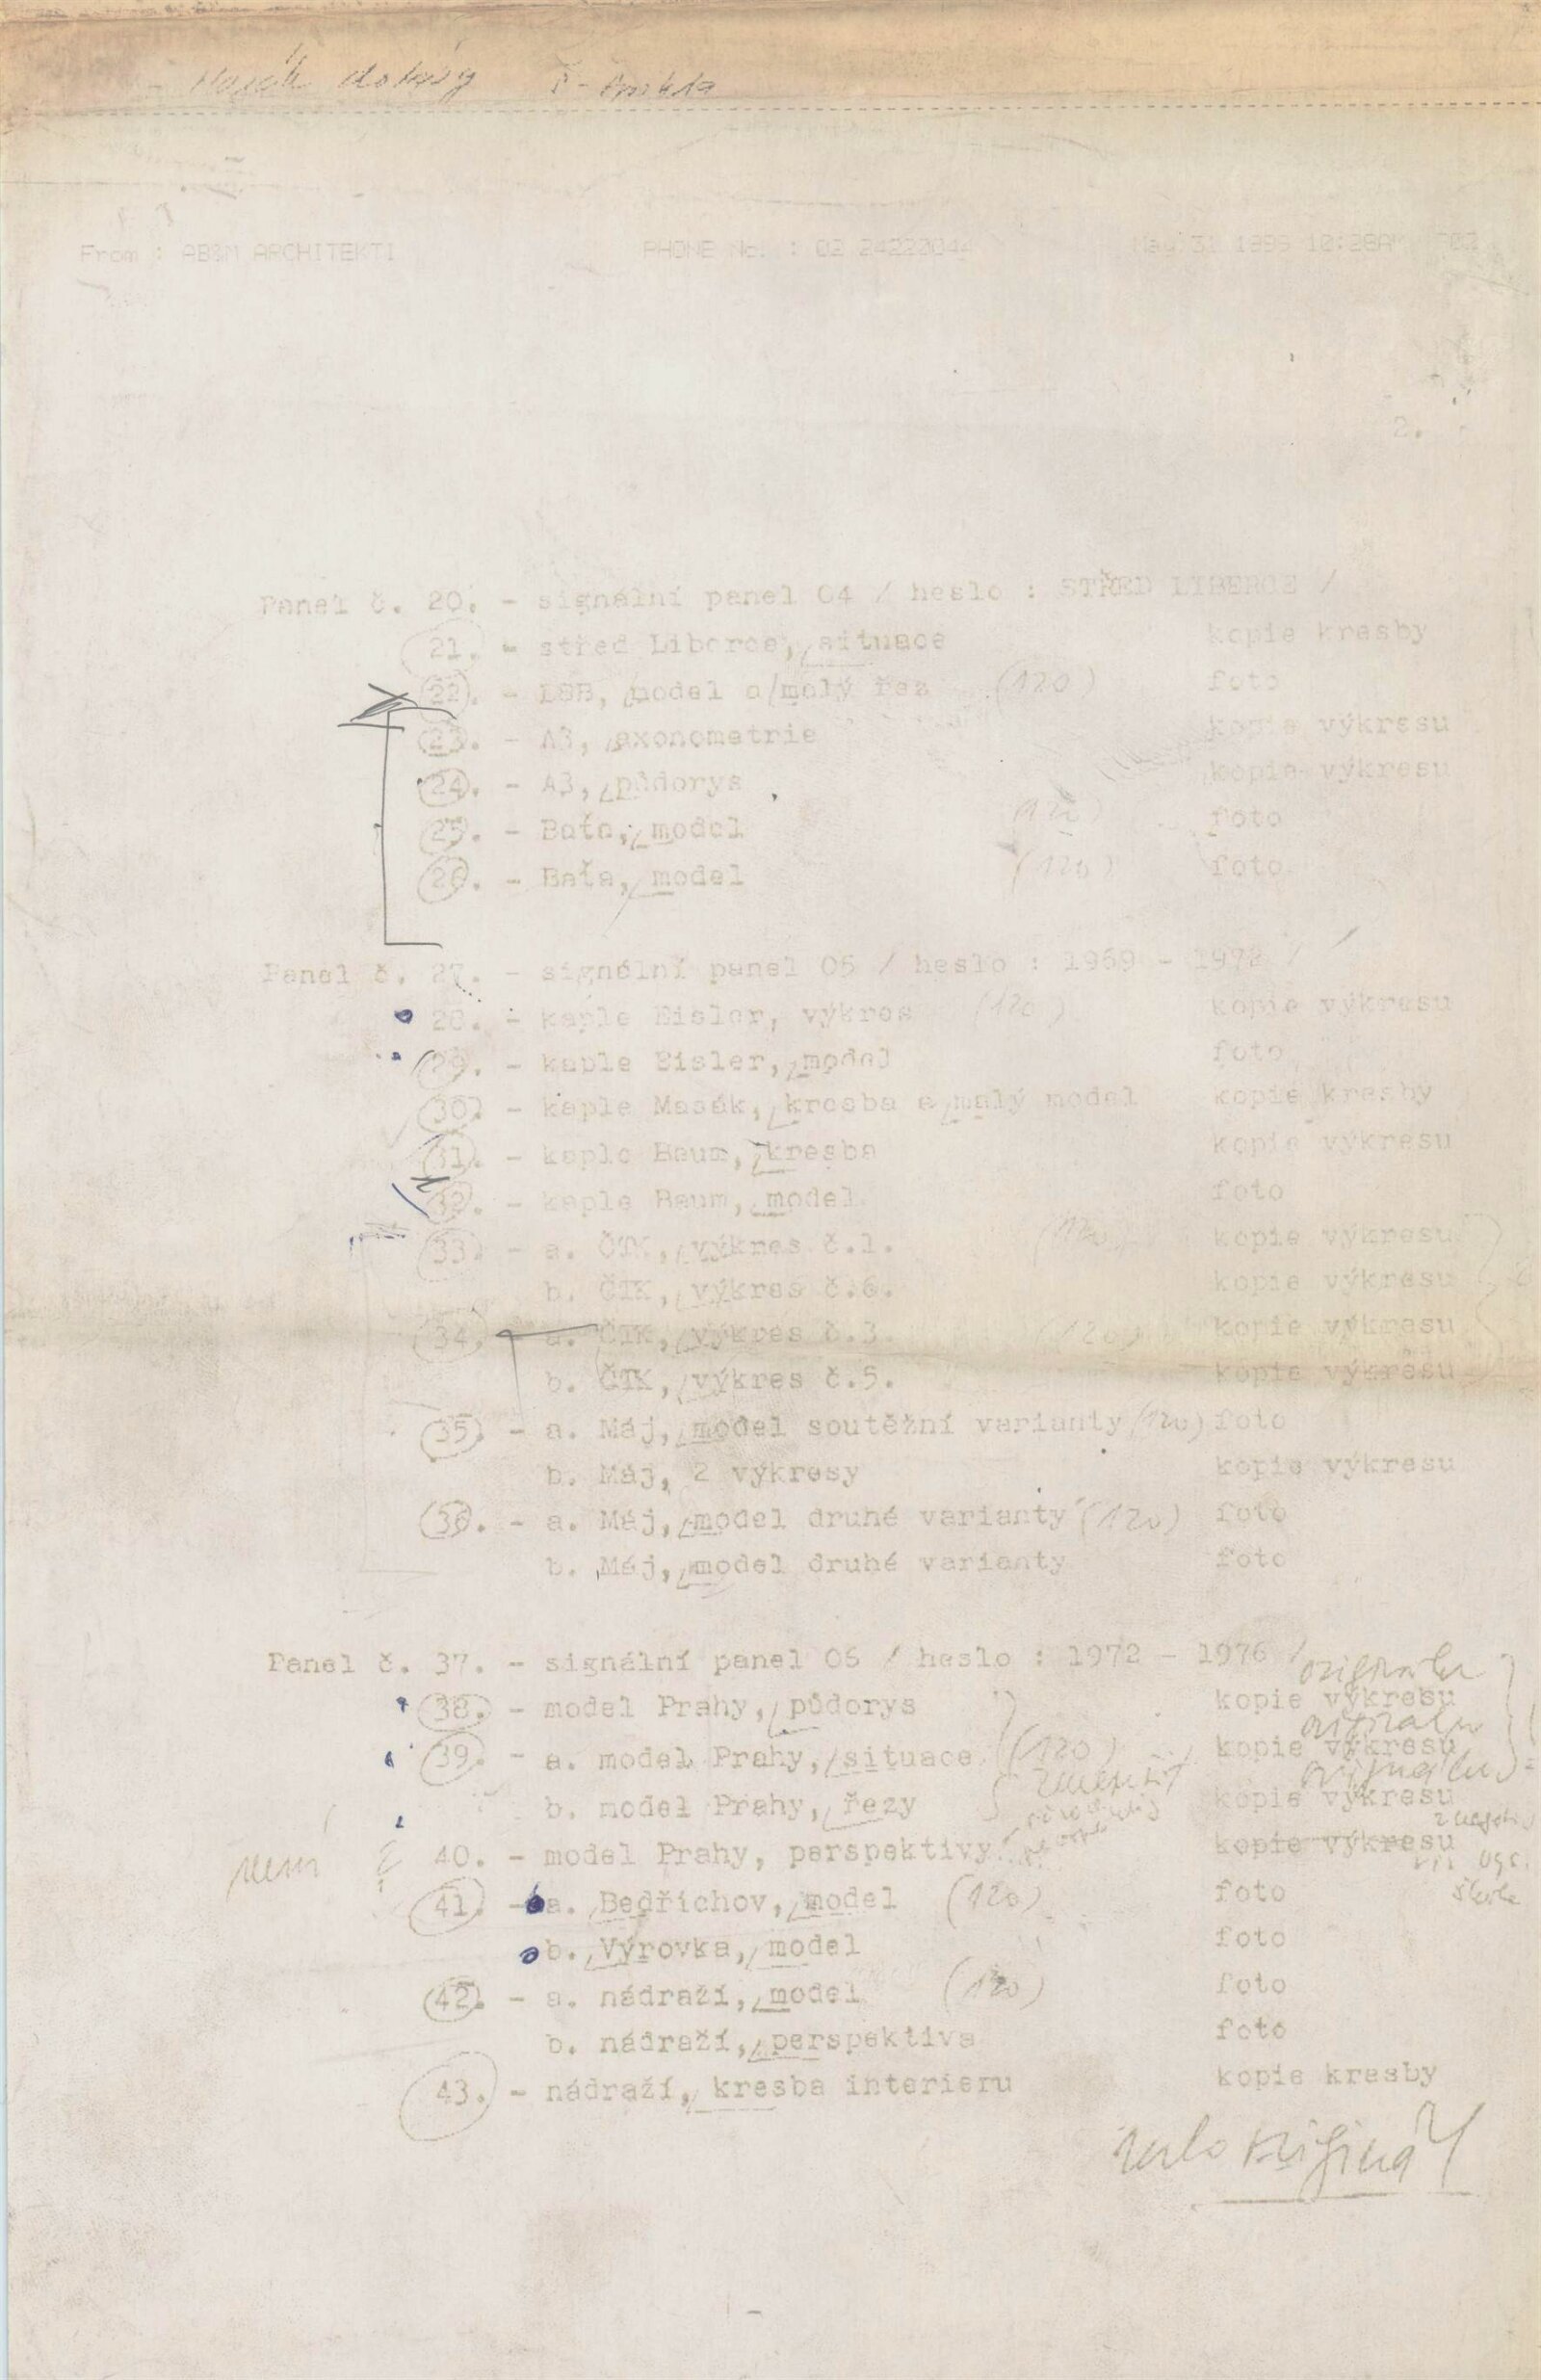 From : AB&M ARCHITEKTI PHONE No. : 02 24222044 May 31 1999 10:28AM P02
2.
Panel č. 20. - signální panel 04 / heslo : STŘED LIBERCE /
21. - střed Liberce, situace kopie kresby
22. - DBB, model a malý řez (120) foto
23. - A3, axonometrie kopie výkresu
24. - A3, půdorys kopie výkresu
25. - Baťa, model (120) foto
26. - Baťa, model (120) foto
Panel č. 27. - signální panel 05 / heslo : 1969 - 1972 /
28. - kaple Eisler, výkres (120) kopie výkresu
29. - kaple Eisler, model foto
30. - kaple Masák, kresba a malý model kopie kresby
31. - kaple Baum, kresba kopie výkresu
32. - kaple Baum, model foto
33. - a. ČTK, výkres č.1. (120) kopie výkresu
b. ČTK, výkres č.6. kopie výkresu
34. - a. ČTK, výkres č.3. (120) kopie výkresu
b. ČTK, výkres č.5. kopie výkresu
35. - a. Máj, model soutěžní varianty (120) foto
b. Máj, 2 výkresy kopie výkresu
36. - a. Máj, model druhé varianty (120) foto
b. Máj, model druhé varianty foto
Panel č. 37. - signální panel 06 / heslo : 1972 - 1976 /
38. - model Prahy, půdorys kopie výkresu
39. - a. model Prahy, situace (120) kopie výkresu
b. model Prahy, řezy kopie výkresu
není ? 40. - model Prahy, perspektivy kopie výkresu
41. - a. Bedřichov, model (120) foto
b. Výrovka, model foto
42. - a. nádraží, model (120) foto
b. nádraží, perspektiva foto
43. - nádraží, kresba interieru kopie kresby